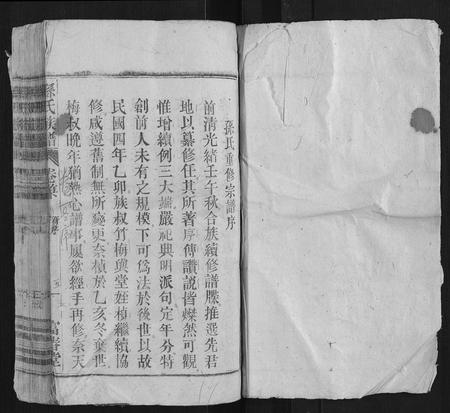 孫氏重修宗譜序
前清光緒壬午秋合族續修譜牒推選先君
地以纂修任其所著序傳讚說皆燦然可觀
惟增續例三大端嚴祀典明派句定年分特
創前人未有之規模下可為法於後世以故
民國四年乙卯族叔竹梅與堂姪楨繼續協
修咸遵舊制無所變更奈楨於乙亥冬棄世
梅叔晚年猶熱心譜事屢欲經手再修奈天
孫氏族譜
卷首
富春堂